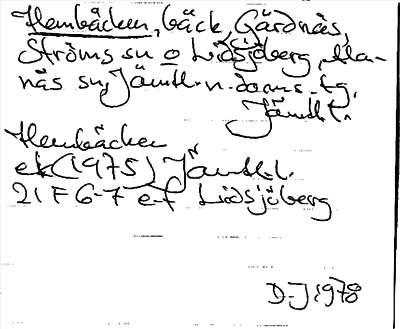 Hembäcken, bäck, Gärdnäs,
Ströms sn o Lidsjöberg, Ala-
näs sn, Jämtl. n. doms. tg,
Jämtl.
Hembäcken
ek (1975) Jämtl. l.
21 F 6-7 e-f Lidsjöberg
D-J 1978